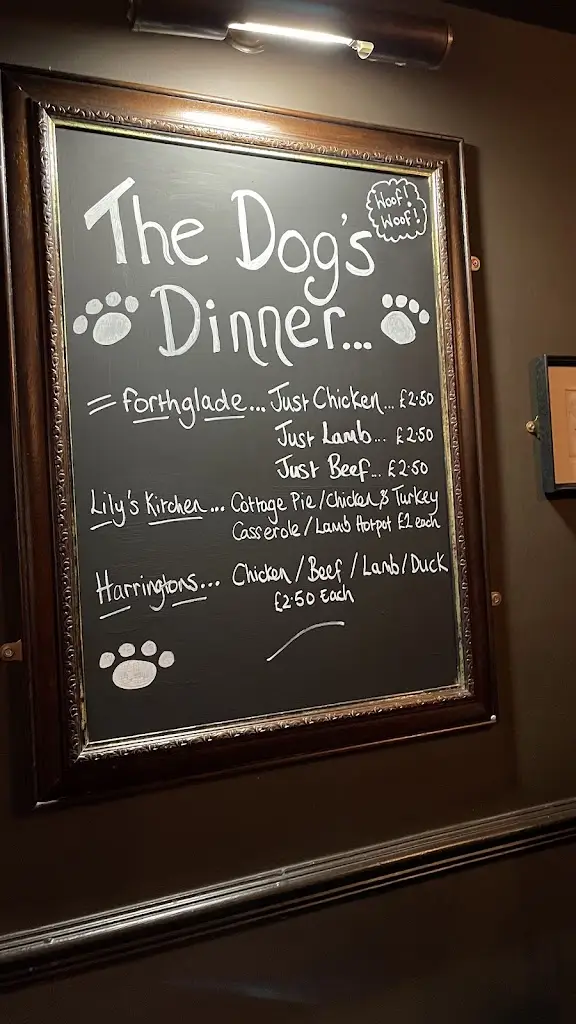 The Dog's
Woof!
Woof!
Dinner...
= Forthglade... Just Chicken... £2.50
Just Lamb... £2.50
Just Beef... £2.50
Lily's Kitchen... Cottage Pie / Chicken & Turkey
Casserole / Lamb Hotpot £2 each
Harringtons... Chicken / Beef / Lamb / Duck
£2.50 Each